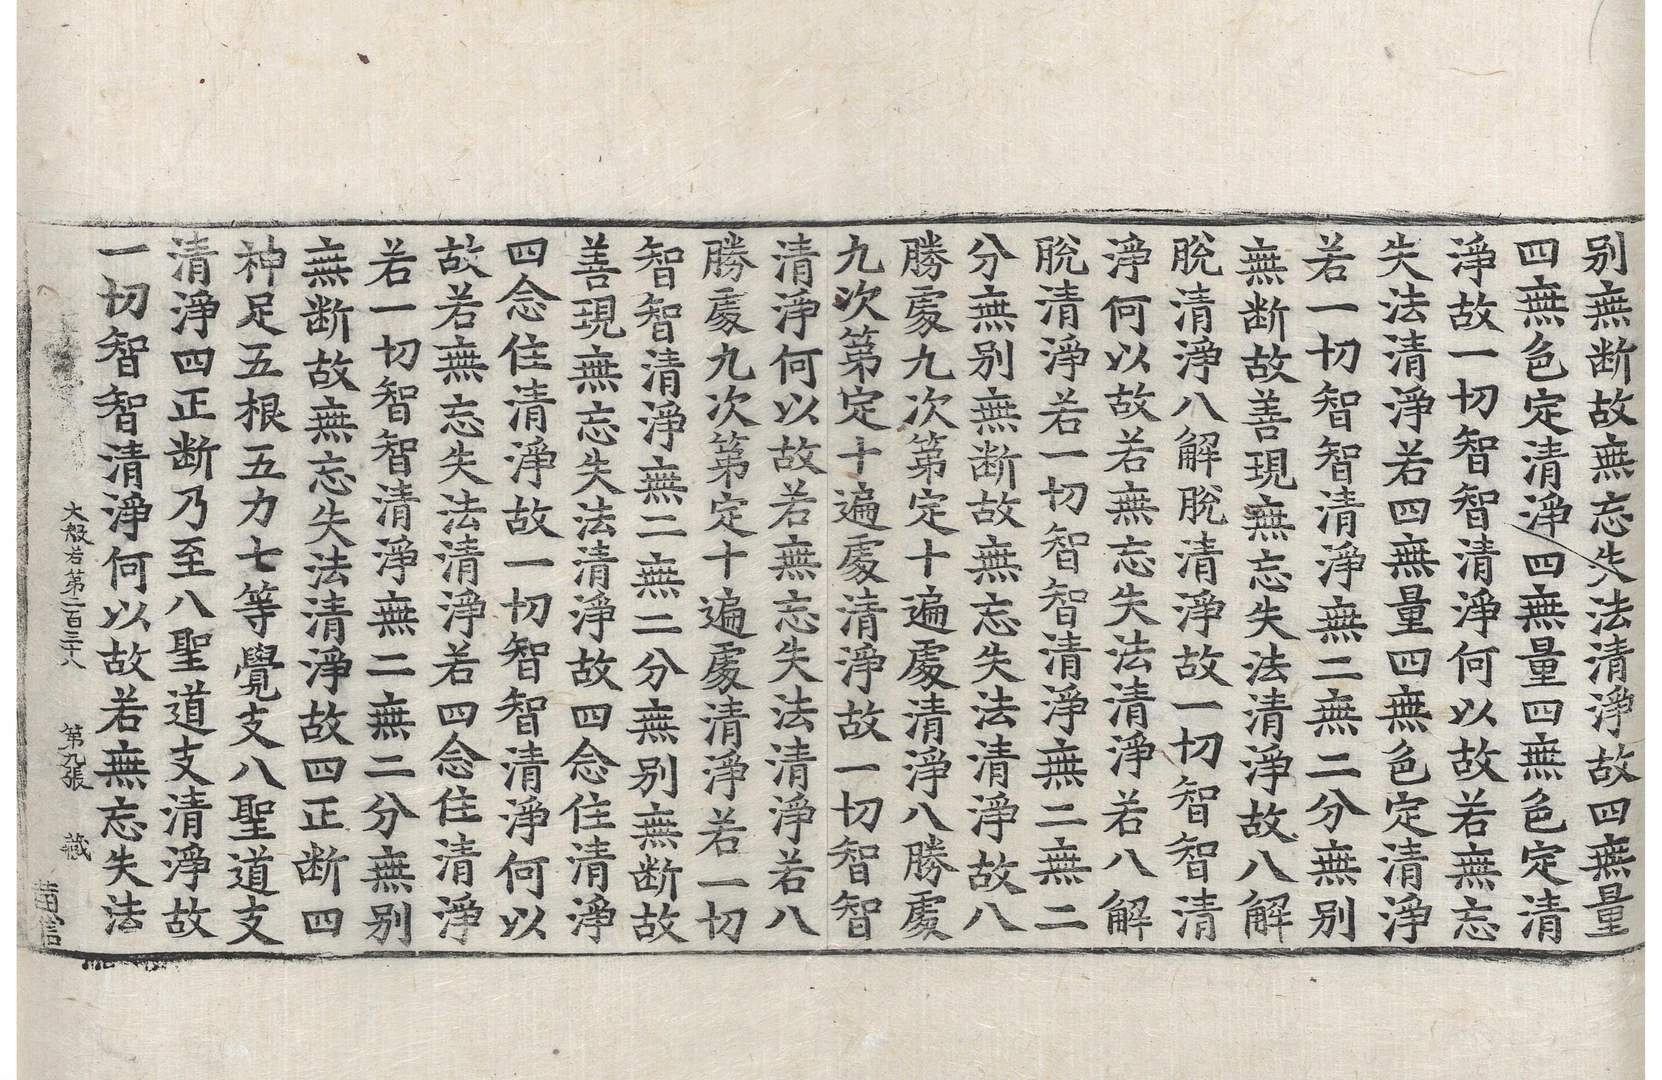 别無断故無忘失法清淨故四無量
四無色定清淨四無量四無色定清
淨故一切智智清淨何以故若無忘
失法清淨若四無量四無色定清淨
若一切智智清淨無二無二分無别
無断故善現無忘失法清淨故八解
脫清淨八解脫清淨故一切智智清
淨何以故若無忘失法清淨若八解
脫清淨若一切智智清淨無二無二
分無别無断故無忘失法清淨故八
勝處九次第定十遍處清淨八勝處
九次第定十遍處清淨故一切智智
清淨何以故若無忘失法清淨若八
勝處九次第定十遍處清淨若一切
智智清淨無二無二分無别無断故
善現無忘失法清淨故四念住清淨
四念住清淨故一切智智清淨何以
故若無忘失法清淨若四念住清淨
若一切智智清淨無二無二分無别
無断故無忘失法清淨故四正断四
神足五根五力七等覺支八聖道支
清淨四正断乃至八聖道支清淨故
一切智智清淨何以故若無忘失法
大般若第二百三十八 第九張 藏